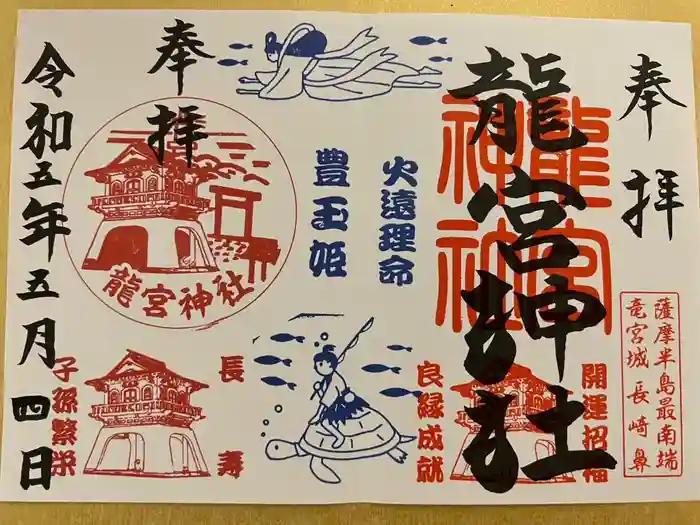 奉拝
龍宮神社
龍宮神社
薩摩半島最南端
竜宮城 長崎鼻
開運招福
良縁成就
火遠理命
豊玉姫
奉拝
龍宮神社
長寿
子孫繁栄
令和五年五月四日